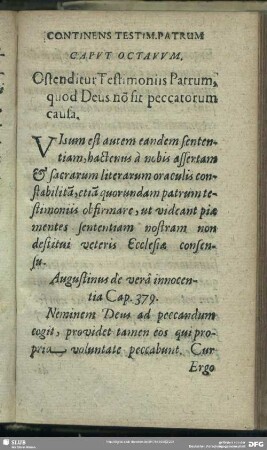 CONTINENS TESTIM. PATRUM
CAPVT OCTAVVM.
Ostenditur Testimoniis Patrum,
quod Deus nõ sit peccatorum
causa.
VIsum est autem eandem senten-
tiam, hactenus à nobis assertam
& sacrarum literarum oraculis con-
stabilitã, etiã quorundam patrum te-
stimoniis obfirmare, ut videant piæ
mentes sententiam nostram non
destitui veteris Ecclesiæ consen-
su.
Augustinus de verâ innocen-
tia Cap. 379.
Neminem Deus ad peccandum
cogit, providet tamen eos qui pro-
pria voluntate peccabunt. Cur
Ergo
SLUB
DFG